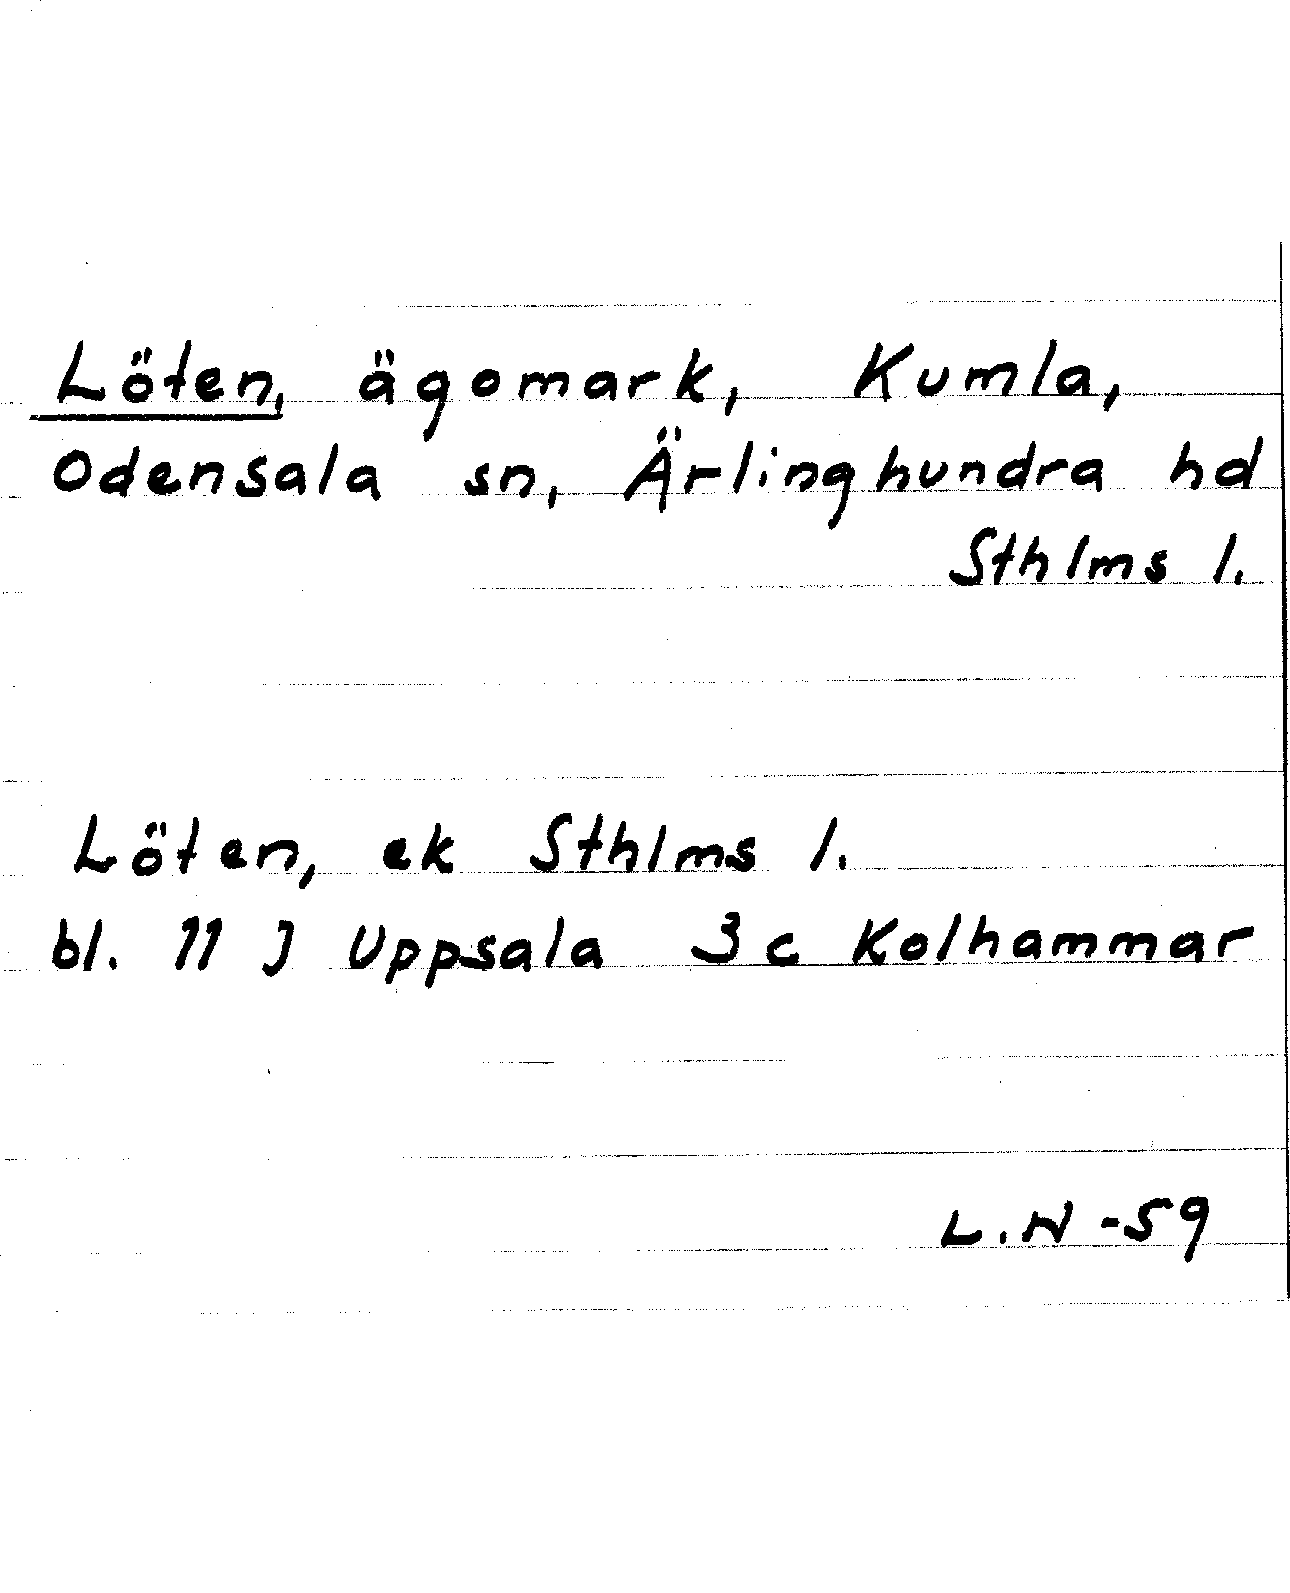 Löten, ägomark, Kumla,
Odensala sn, Ärlinghundra hd
Sthlms l.
Löten, ek Sthlms l.
bl. 11 J Uppsala 3 c Kolhammar
L.N -59